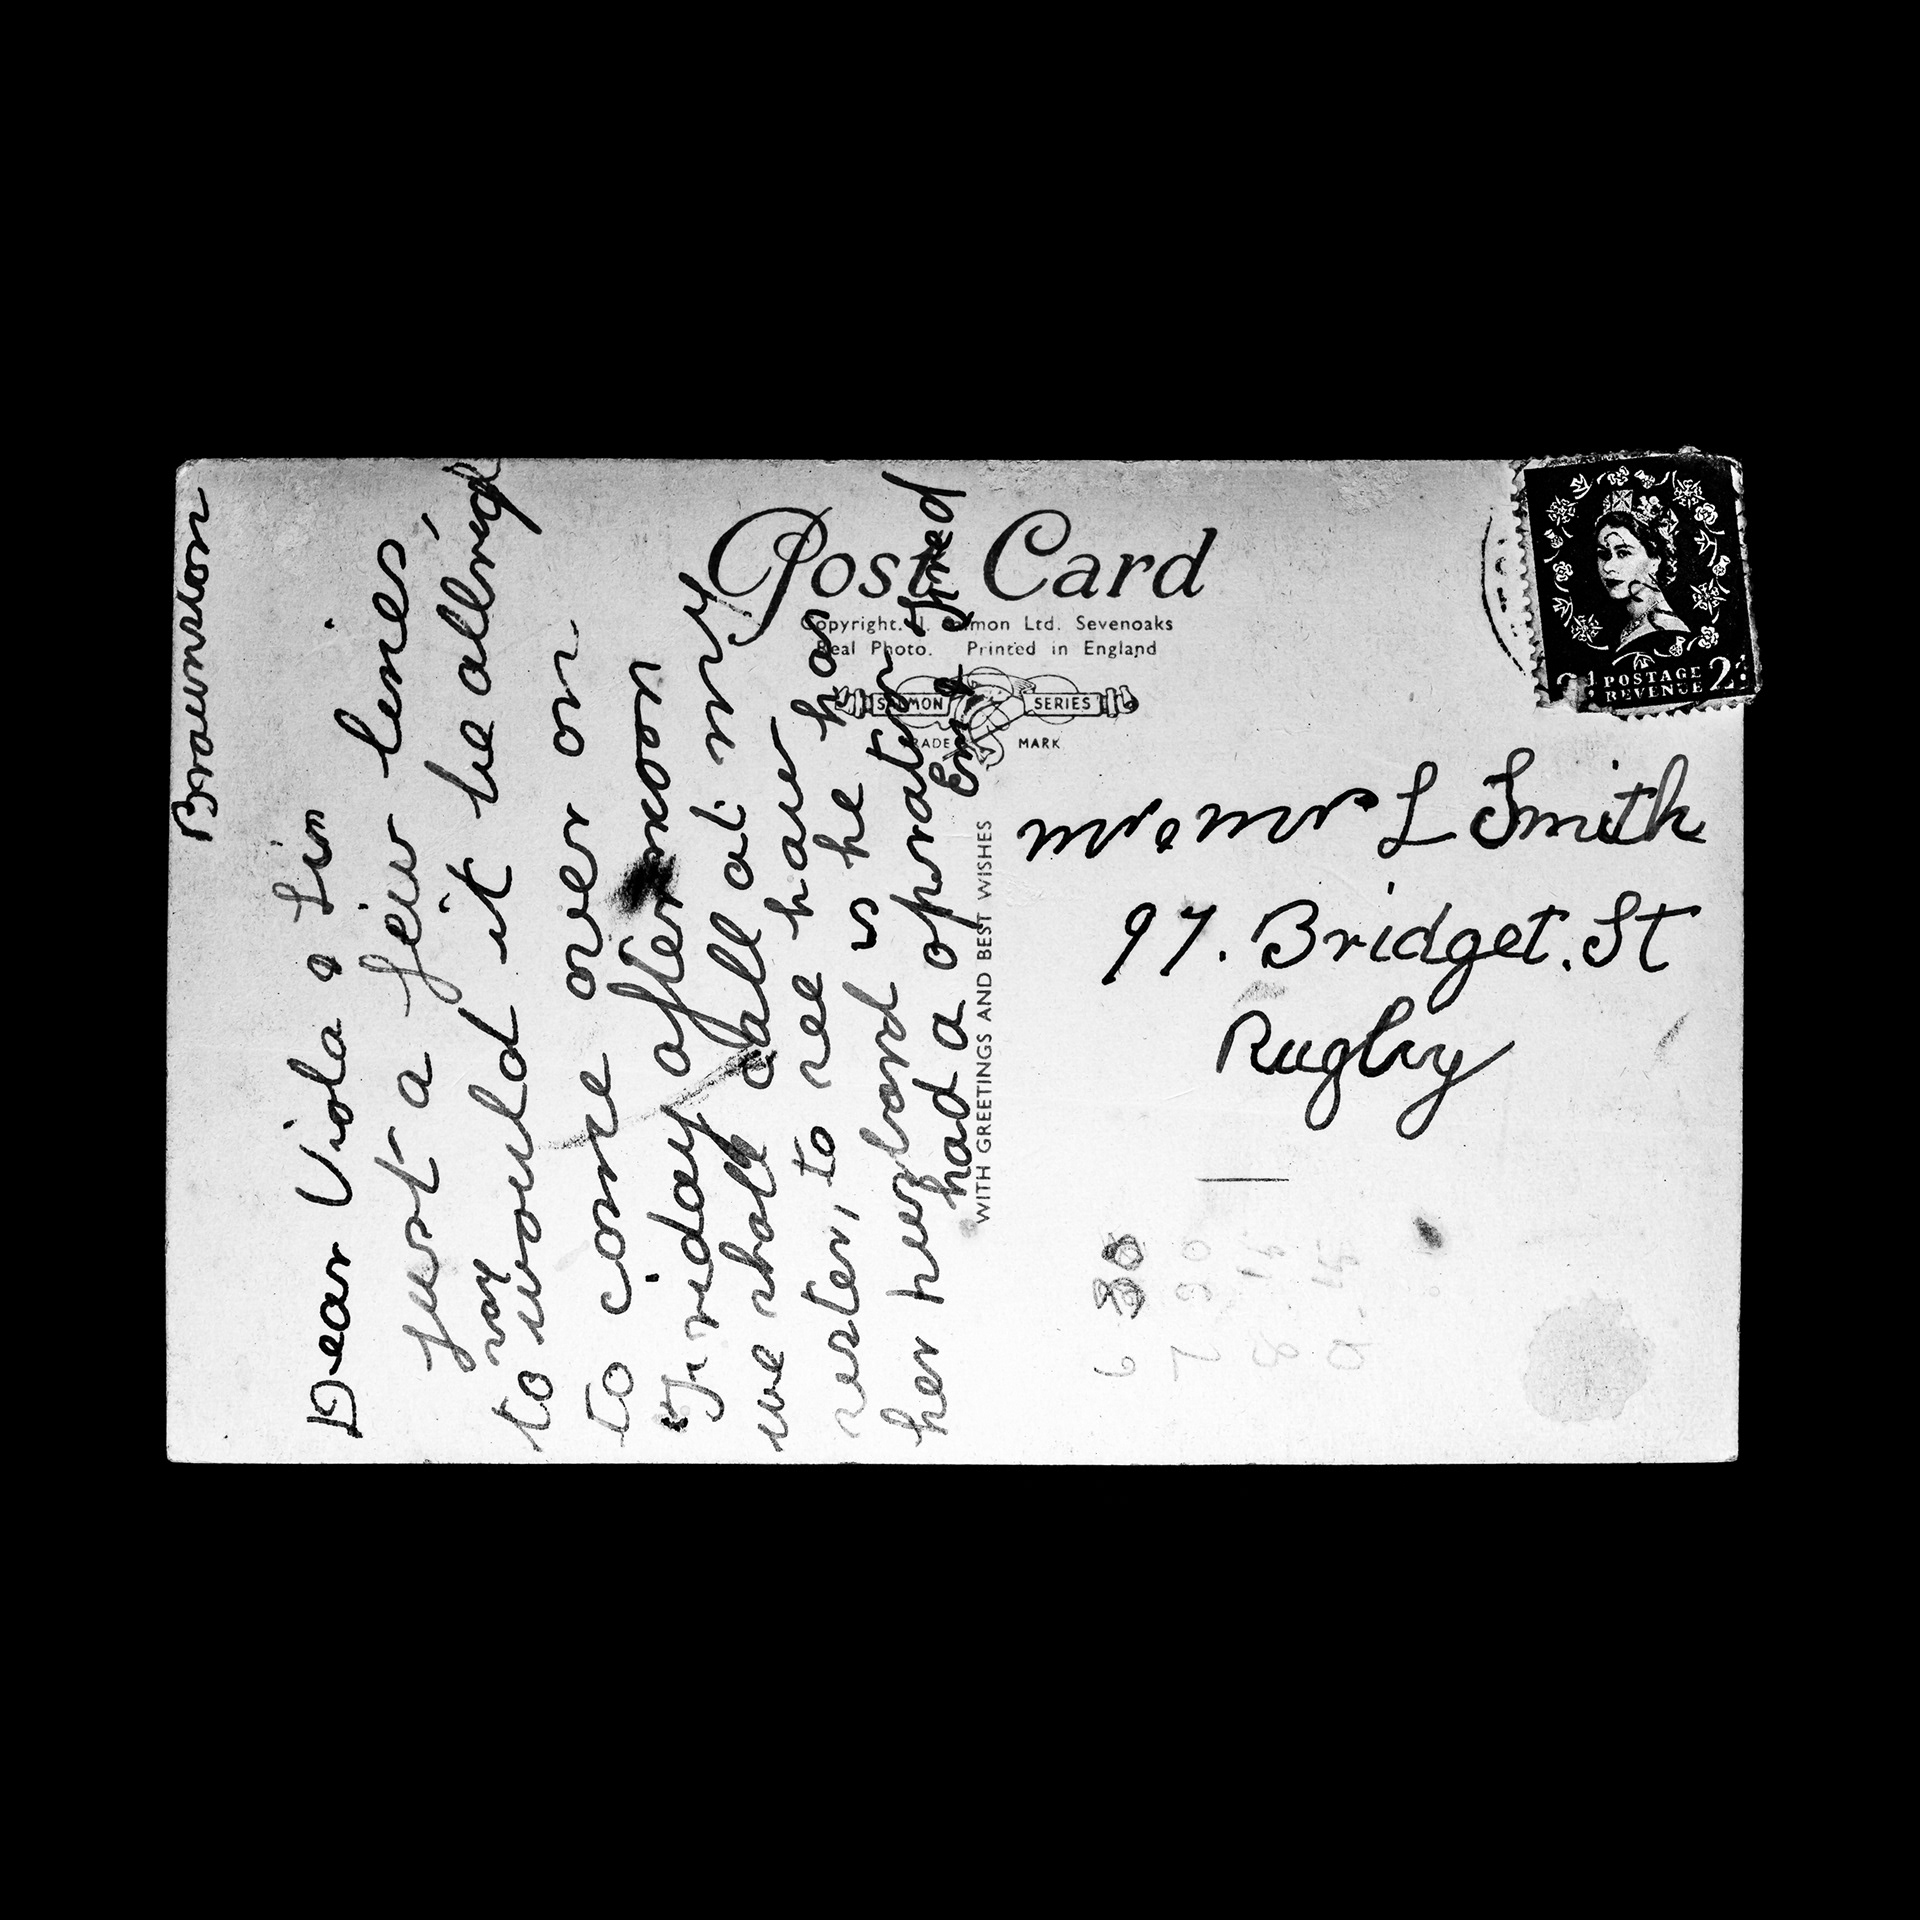 Braunston
Dear Viola & Lin
Just a few lines,
to say
would it be allrigh
to come over on
Friday afternoon
we shall call at my
sister, to see how has
her husband is he has
had a opration
Em & Fred
Post Card
Copyright. J. Salmon Ltd. Sevenoaks
Real Photo. Printed in England
SALMON SERIES
TRADE MARK
WITH GREETINGS AND BEST WISHES
POSTAGE
REVENUE
Mr & Mrs L Smith
97. Bridget. St
Rugby